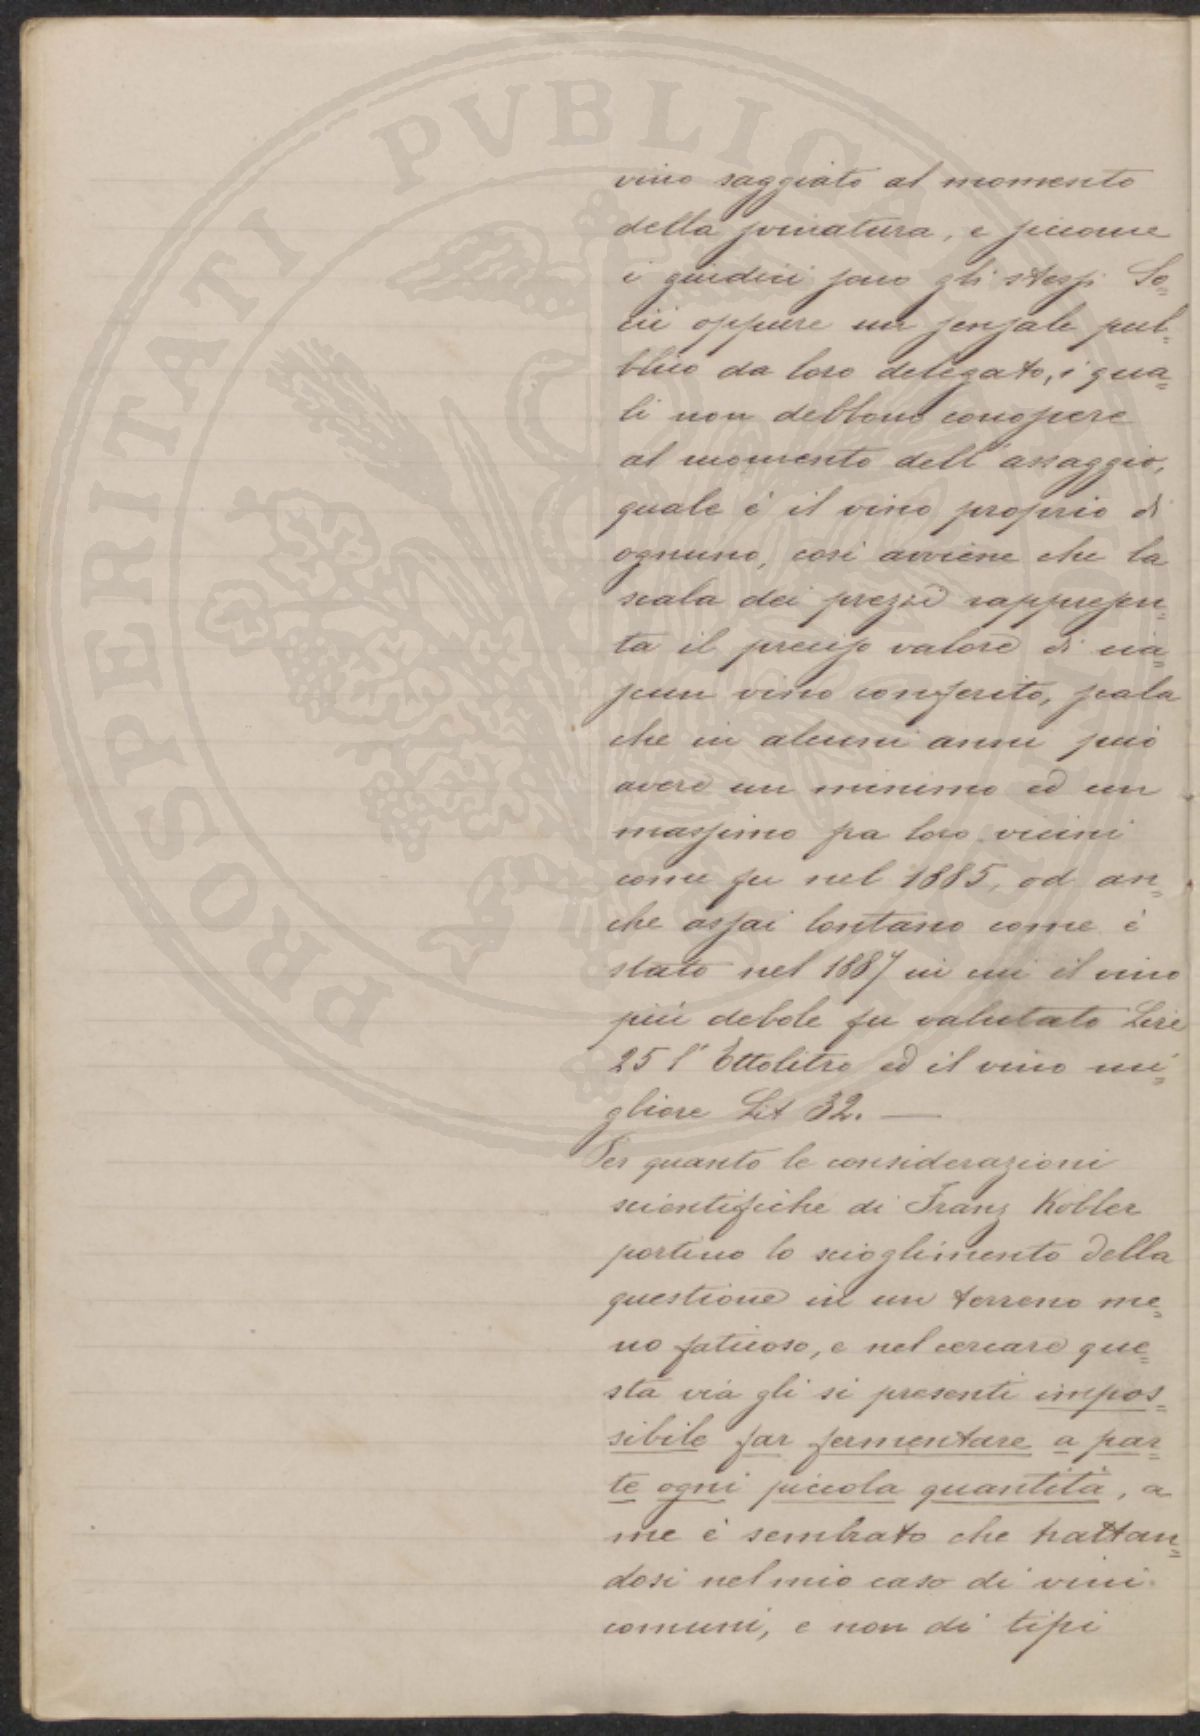 PROSPERITATI PVBLICAE
vino saggiato al momento
della svinatura, e siccome
i giudici sono gli stessi So=
cii oppure un sensale pub=
blico da loro delegato, i qua=
li non debbono conoscere
al momento dell'assaggio,
quale è il vino proprio di
ognuno, così avviene che la
scala dei prezzi rappresen=
ta il preciso valore di cia=
scun vino conferito, scala
che in alcuni anni può
avere un minimo ed un
massimo fra loro vicini
come fu nel 1885, od an=
che assai lontano come è
stato nel 1887 in cui il vino
più debole fu valutato Lire
25 l'Ettolitro ed il vino mi=
gliore Lit 32. —
Per quanto le considerazioni
scientifiche di Franz Kobler
portino lo scioglimento della
questione in un terreno me=
no faticoso, e nel cercare que=
sta via gli si presenti impos=
sibile far fermentare a par=
te ogni piccola quantità, a
me è sembrato che trattan=
dosi nel mio caso di vini
comuni, e non di tipi